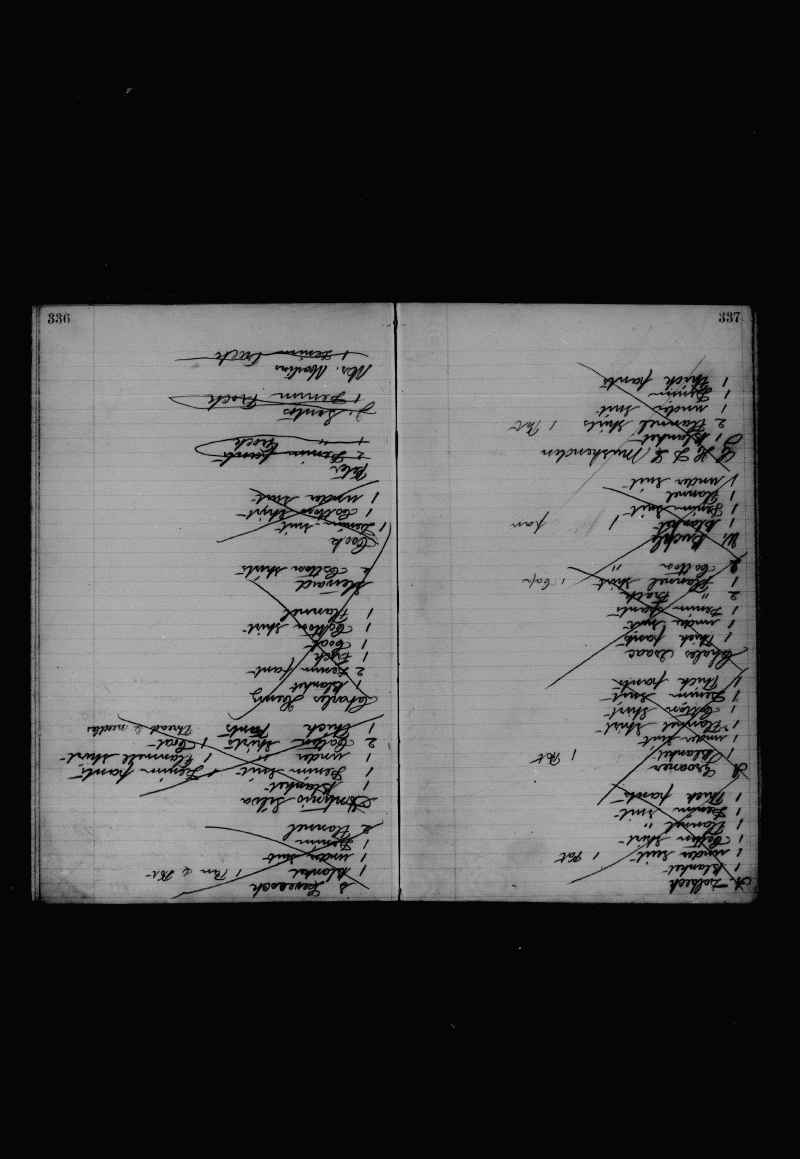 337
A. Folsech
1 Blanket
1 under suit 1 Pot
1 Cotton Shirt
1 Flannel "
1 Denim suit
1 Thick pants
A. Groaner
1 Blanket 1 Pot
1 under suit
1 Flannel shirt
1 Cotton Shirt
1 Denim suit
1 Thick pants
Charles Isaac
1 Thick pants
1 under suit
1 Denim pants
2 " Frock
1 Flannel shirt 1 Cap
2 Cotton "
W. Buckle
1 Blanket 1 pan
1 Denim suit
1 Flannel
1 under suit
1 Blanket
2 Flannel shirts 1 Pot
1 under suit
1 Denim
1 Thick pants
336
1 Blanket 1 Pan & Pot
1 under suit
1 Denim
2 Flannel
Antonio Silva
1 Blanket
1 Denim suit 1 Denim pants
1 under " 1 Flannel shirt
2 Cotton shirts 1 Coat
1 Thick pants Thread & needles
Charles Henry
1 Blanket
2 Denim pants
1 Frock
1 Coat
1 Cotton shirt
1 Flannel
Steward
2 Cotton shirts
Cook
1 Denim suit
1 Cotton Shirt
1 under suit
Peter
2 Denim pants
1 " Frock
J. Santos
1 Denim Frock
Mr. Martins
1 Denim Frock